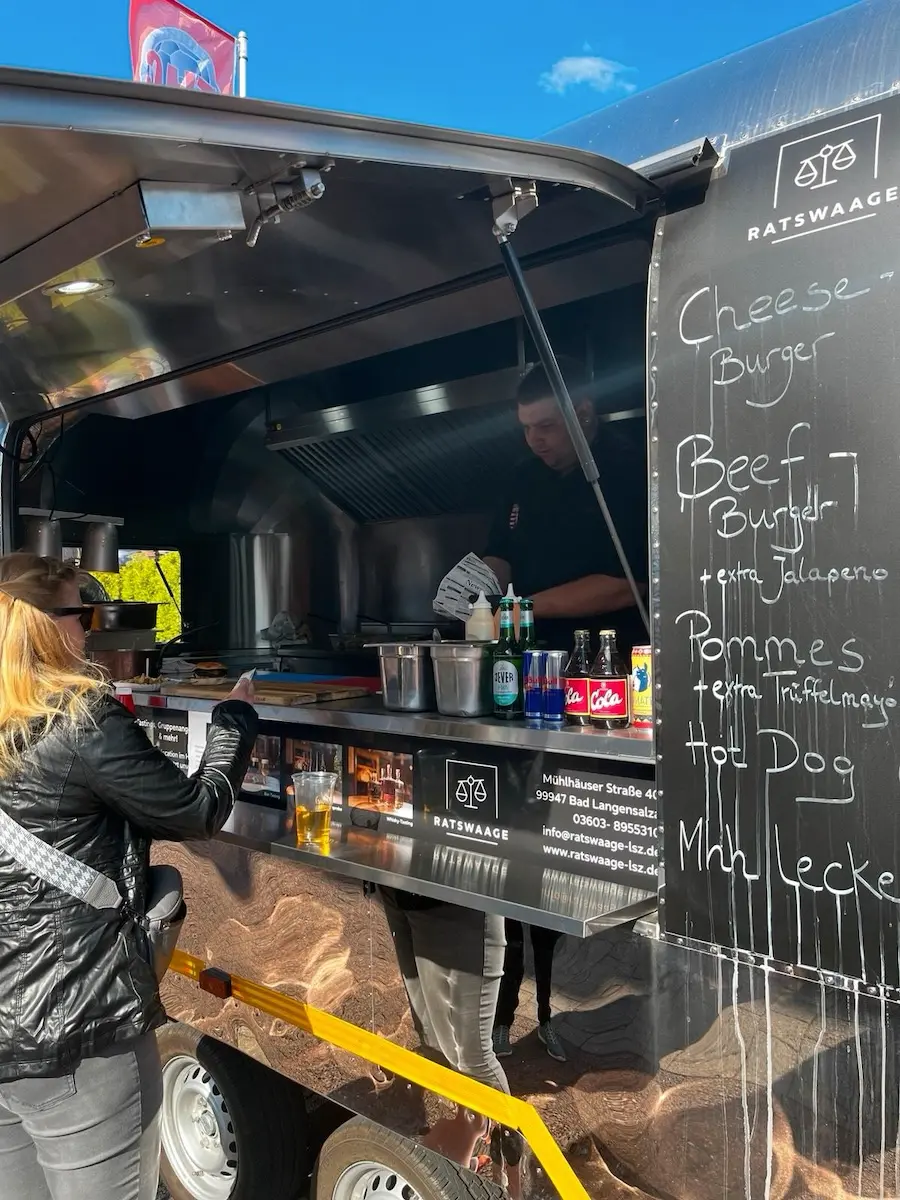 RATSWAAGE
Cheese-
Burger
Beef-
Burger
+extra Jalapeno
Pommes
+extra Trüffelmayo
Hot Dog
Mhh Lecke
JEVER
Cola
Cola
Tastings, Gruppenang
& mehr!
Whisky-Tasting
RATSWAAGE
Mühlhäuser Straße 40
99947 Bad Langensalza
03603- 8955310
info@ratswaage-lsz.de
www.ratswaage-lsz.de